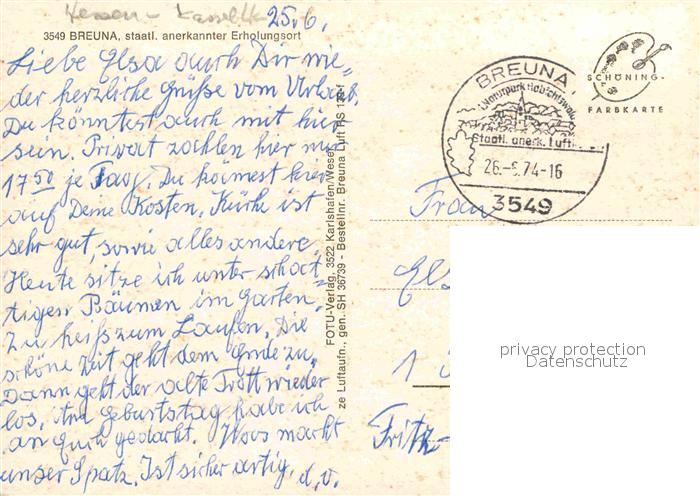 Hessen - Kassel
25.6.
3549 BREUNA, staatl. anerkannter Erholungsort
Liebe Elsa auch Dir wie-
der herzliche Grüße vom Urlaub.
Du könntest auch mit hier
sein. Privat zahlen hier nur
17 50 je Tag. Du kämest hier
auf Deine Kosten. Küche ist
sehr gut, sowie alles andere.
Heute sitze ich unter schat-
tigen Bäumen im Garten.
Zu heiß zum Laufen. Die
schöne Zeit geht dem Ende zu.
Dann geht der alte Trott wieder
los. Am Geburtstag habe ich
an Euch gedacht. Was macht
unser Spatz. Ist sicher artig. d. o.
FOTU-Verlag, 3522 Karlshafen/Weser
ze Luftaufn., gen. SH 36739 - Bestellnr. Breuna Luft RS
BREUNA
Naturpark Habichtswald
Staatl. anerk. Luftk
26.-6.74-16
3549
SCHÖNING-
FARBKARTE
Frau
Els
1
Fritz-
privacy protection
Datenschutz